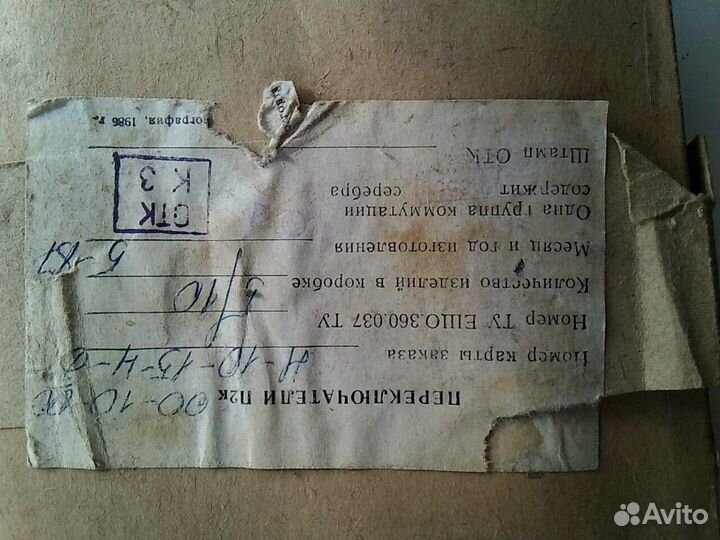 ПЕРЕКЛЮЧАТЕЛИ П2к
Номер карты заказа
Номер ТУ ЕЩО.360.037 ТУ
Количество изделий в коробке 10
Месяц и год изготовления
Одна группа коммутации
содержит серебра
Штамп ОТК
ОТК
К 3
ография, 1986 г.
Avito